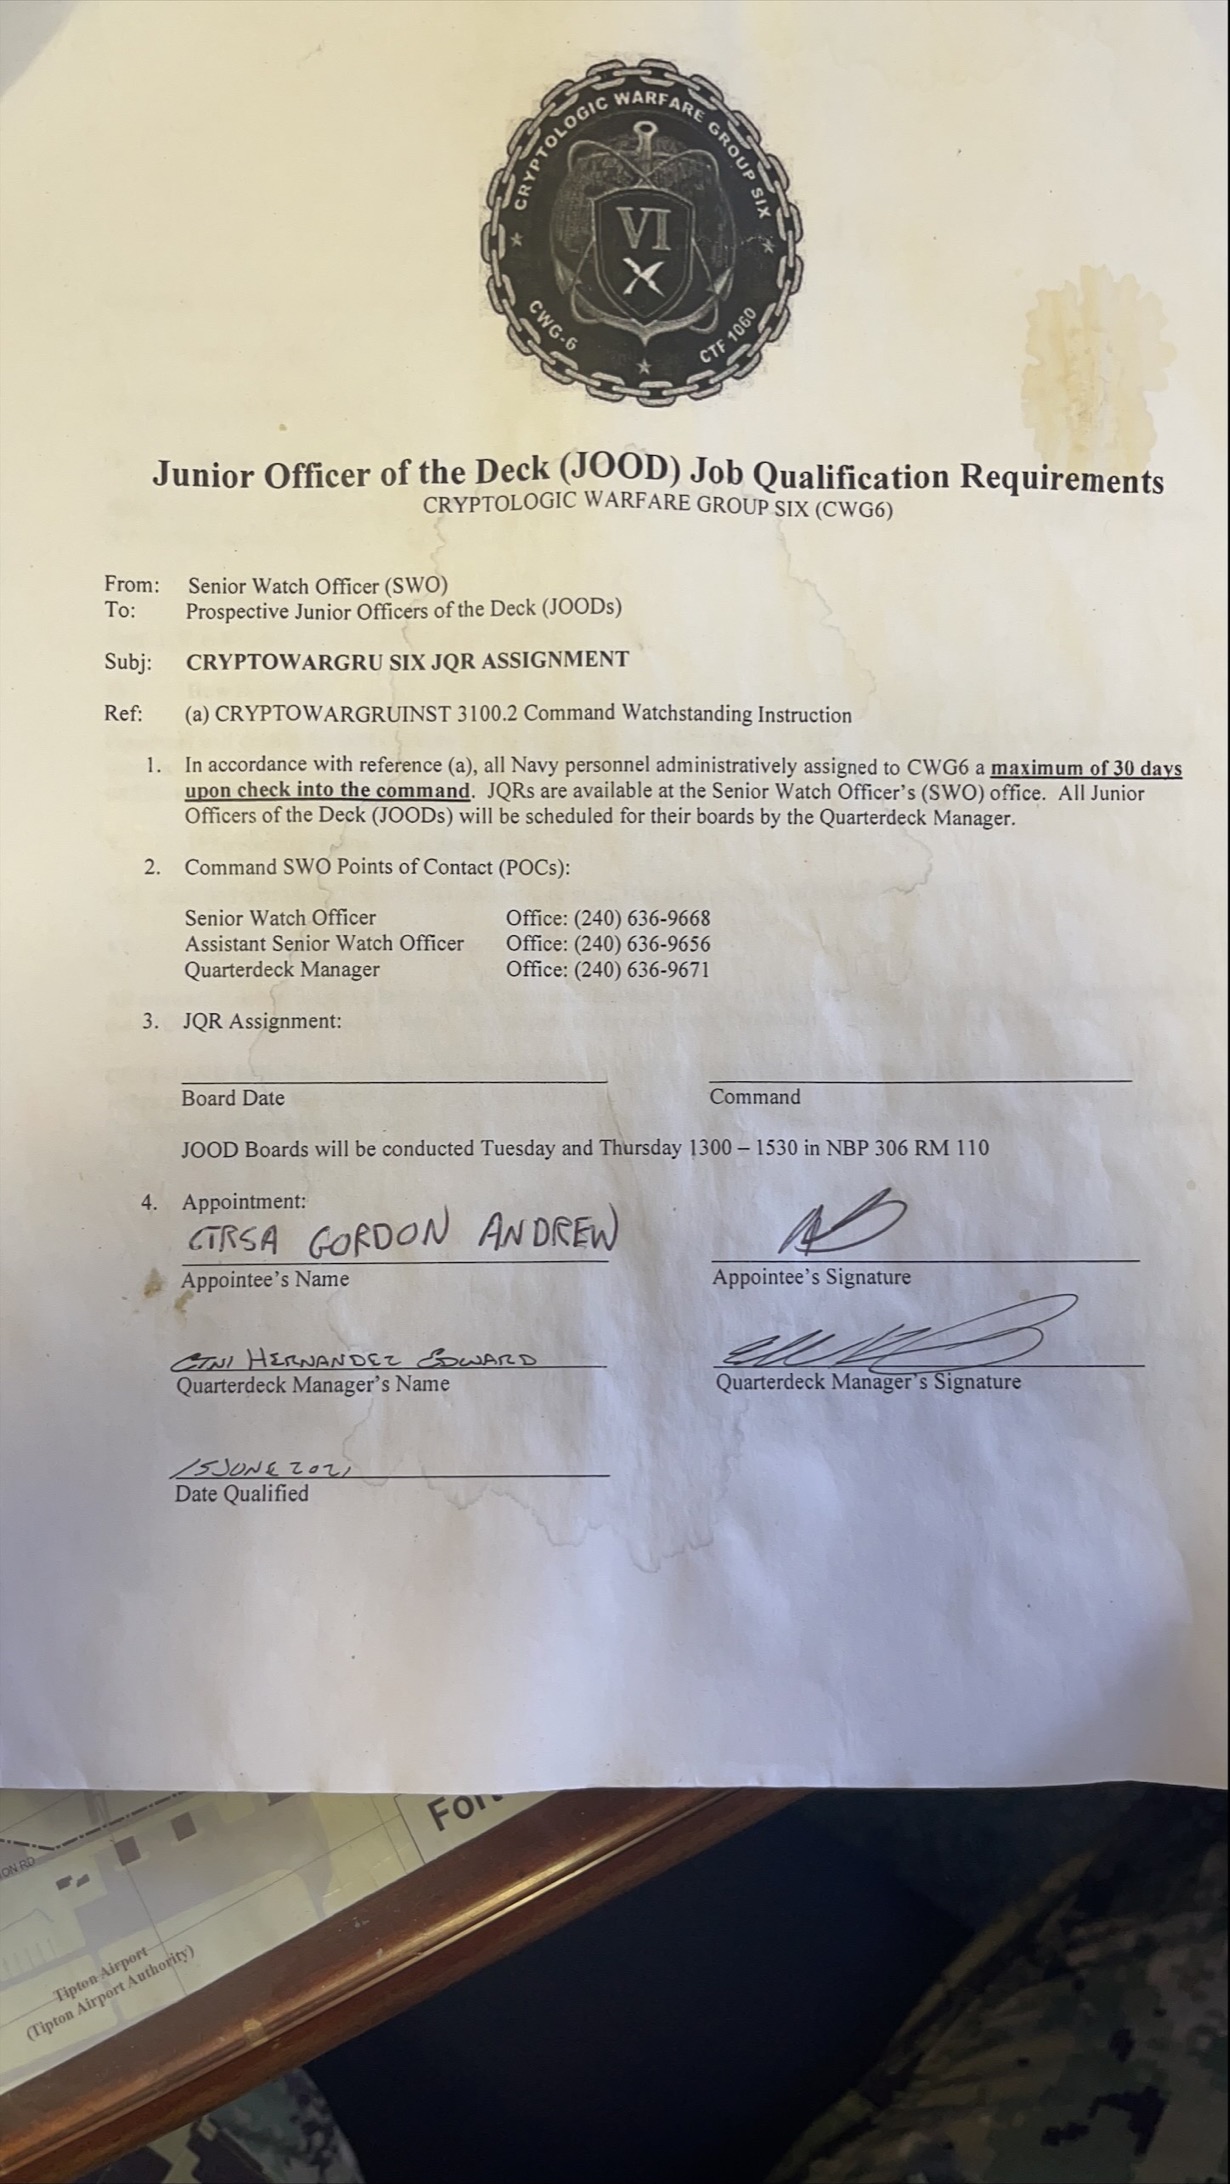 CRYPTOLOGIC WARFARE GROUP SIX
VI
CWG-6
CTF 1060
Junior Officer of the Deck (JOOD) Job Qualification Requirements
CRYPTOLOGIC WARFARE GROUP SIX (CWG6)
From: Senior Watch Officer (SWO)
To: Prospective Junior Officers of the Deck (JOODs)
Subj: CRYPTOWARGRU SIX JQR ASSIGNMENT
Ref: (a) CRYPTOWARGRUINST 3100.2 Command Watchstanding Instruction
1. In accordance with reference (a), all Navy personnel administratively assigned to CWG6 a maximum of 30 days
upon check into the command. JQRs are available at the Senior Watch Officer's (SWO) office. All Junior
Officers of the Deck (JOODs) will be scheduled for their boards by the Quarterdeck Manager.
2. Command SWO Points of Contact (POCs):
Senior Watch Officer Office: (240) 636-9668
Assistant Senior Watch Officer Office: (240) 636-9656
Quarterdeck Manager Office: (240) 636-9671
3. JQR Assignment:
Board Date Command
JOOD Boards will be conducted Tuesday and Thursday 1300 – 1530 in NBP 306 RM 110
4. Appointment:
CTRSA GORDON ANDREW
Appointee's Name Appointee's Signature
CTN1 HERNANDEZ EDWARD
Quarterdeck Manager's Name Quarterdeck Manager's Signature
15 JUNE 2021
Date Qualified
ON RD
Tipton Airport
(Tipton Airport Authority)